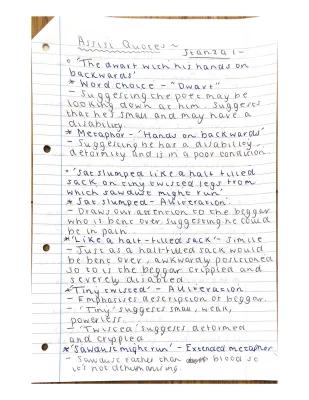 Assisi Quotes ~
Stanza 1 -
• 'The dwarf with his hands on
backwards'
* Word choice - "Dwarf"
- Suggesting the poet may be
looking down at him. Suggests
that he's small and may have a
disability.
* Metaphor - 'Hands on backwards'
- Suggesting he has a disability,
deformity and is in a poor condition
• 'Sat slumped like a half filled
sack on tiny twisted legs from
which sawdust might run'
* Sat slumped - Alliteration
- Draws our attention to the beggar
who is bent over suggesting he could
be in pain.
* 'Like a half-filled sack' - Simile
- Just as a half-filled sack would
be bent over, awkwardly positioned
so to is the beggar crippled and
severely disabled
* 'Tiny twisted' - Alliteration
- Emphasises description of beggar.
- 'Tiny' suggests small, weak,
powerless.
- 'Twisted' suggests deformed
and crippled
* 'Sawdust might run' - Extended metaphor
- Sawdust rather than blood so
it's not dehumanising.